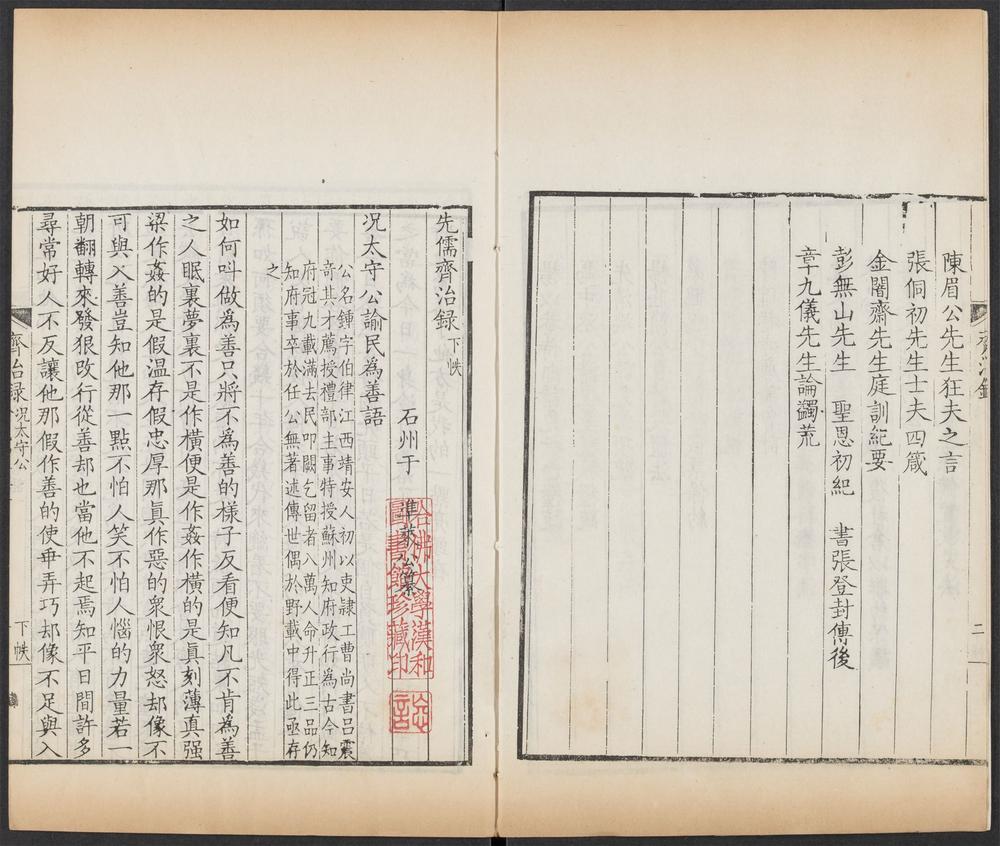 陳眉公先生狂夫之言
張侗初先生士夫四箴
金闇齋先生庭訓紀要
彭無山先生 聖恩初紀 書張登封傳後
章九儀先生論蠲荒
二
先儒齊治録 下帙
石州于 準萊公纂
哈佛大學漢和圖書館珍藏印
况太守公諭民爲善語
公名鍾字伯律江西靖安人初以吏隷工曹尚書吕震
奇其才薦授禮部主事特授蘇州知府政行爲古今知
府冠九載滿去民叩闕乞留者八萬人命升正三品仍
知府事卒於任公無著述傳世偶於野載中得此亟存
之
如何呌做爲善只將不爲善的樣子反看便知凡不肯爲善
之人眠裏夢裏不是作橫便是作姦作橫的是眞刻薄真强
梁作姦的是假温存假忠厚那眞作惡的衆恨衆怒却像不
可與入善豈知他那一點不怕人笑不怕人惱的力量若一
朝翻轉來發狠改行從善却也當他不起焉知平日間許多
尋常好人不反讓他那假作善的使乖弄巧却像不足與入
齊治録 况太守公
下帙